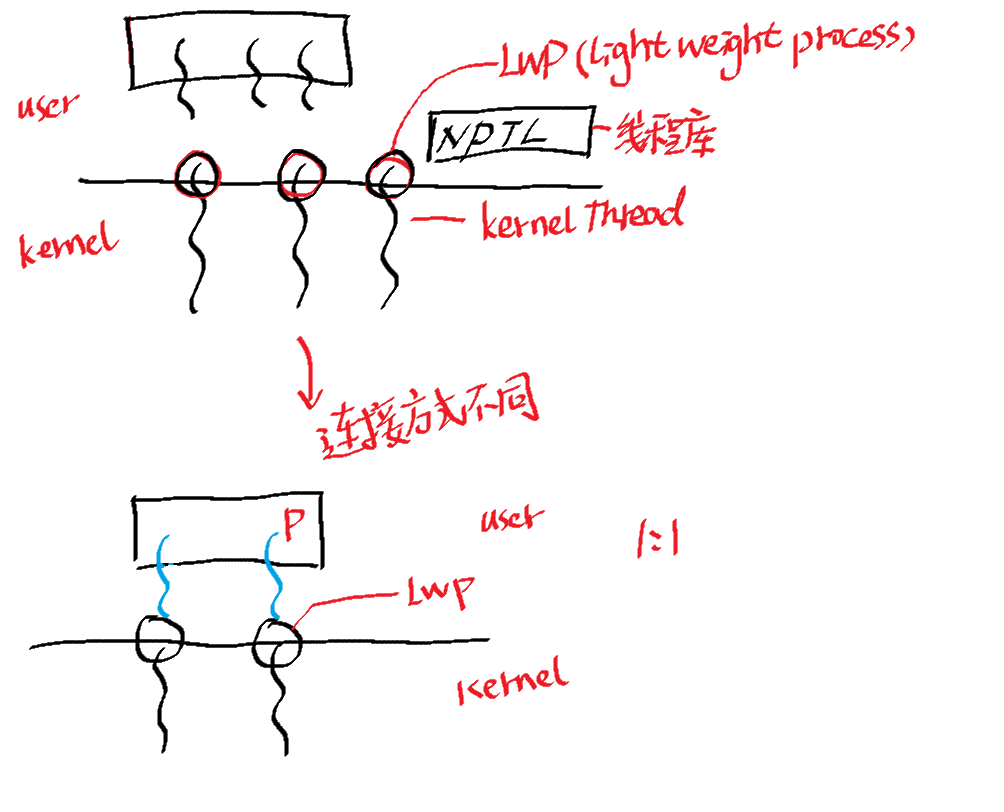 LWP (Light weight process)
user
NPTL
线程库
kernel Thread
kernel
连接方式不同
P
user
1:1
LWP
Kernel